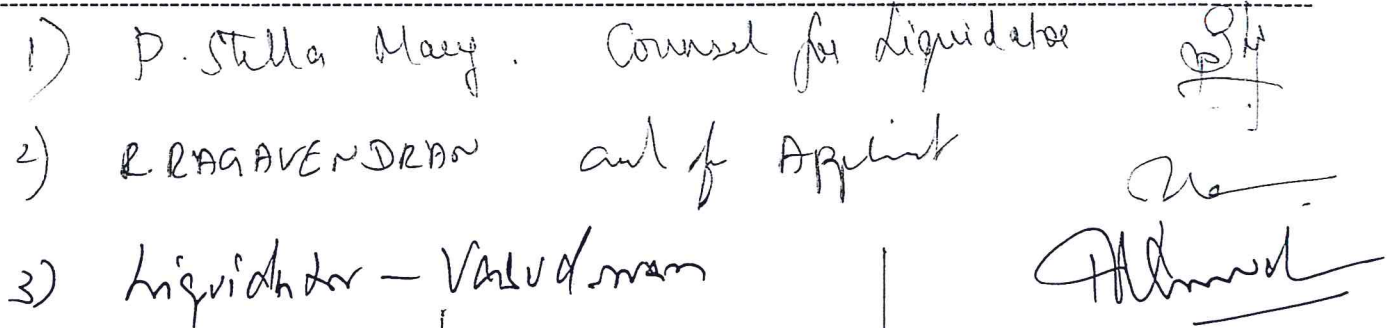 1) P. Stella Mary. Counsel for Liquidator
2) R. RAGAVENDRAN for Applicant
3) Liquidator – Vasudevan